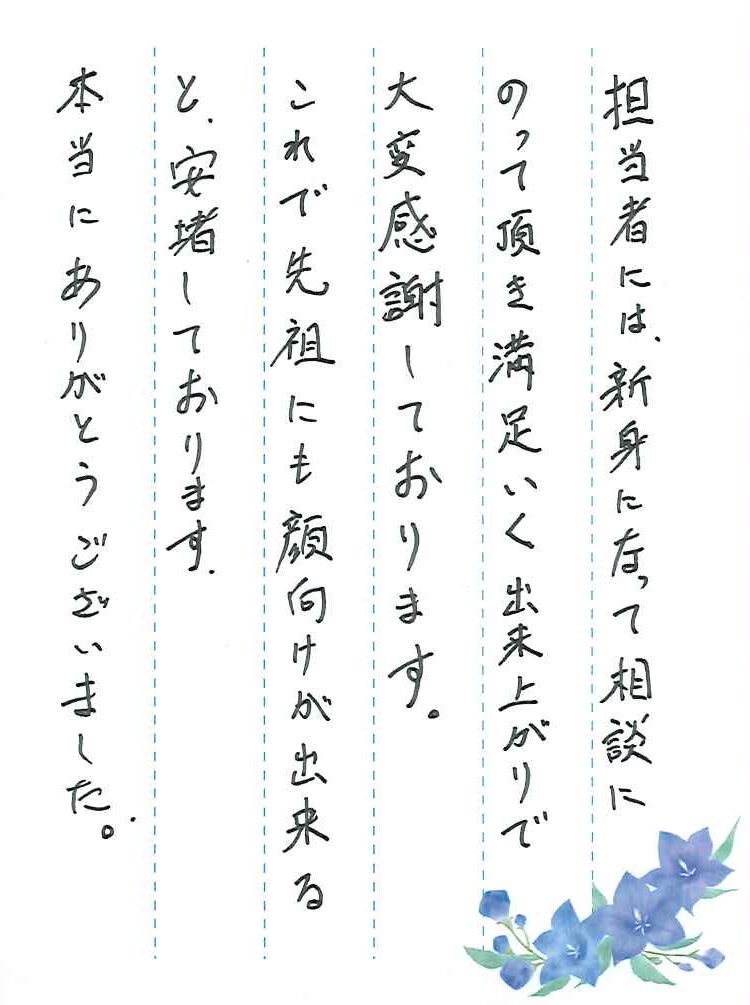 担当者には、新身になって相談に
のって頂き満足いく出来上がりで
大変感謝しております。
これで先祖にも顔向けが出来る
と、安堵しております。
本当にありがとうございました。